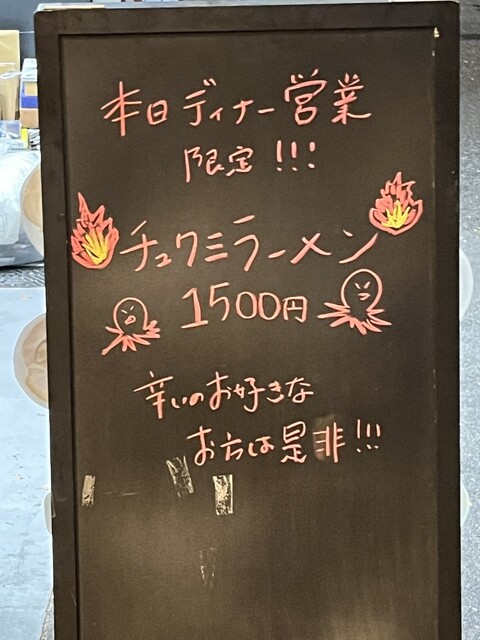 本日ディナー営業
限定!!!
チュクミラーメン
1500円
辛いのお好きな
お方は是非!!!